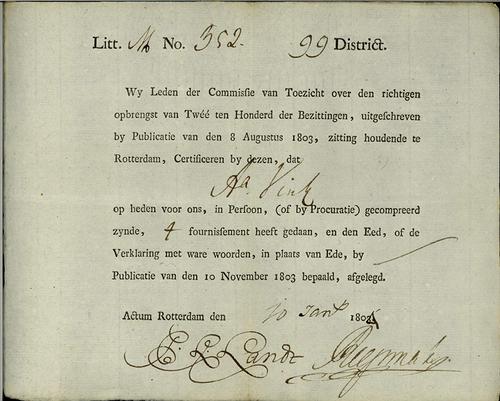 Litt. M No. 352. 99 District.
Wy Leden der Commissie van Toezicht over den richtigen
opbrengst van Twéé ten Honderd der Bezittingen, uitgeschreven
by Publicatie van den 8 Augustus 1803, zitting houdende te
Rotterdam, Certificeren by dezen, dat
Aa. Vink
op heden voor ons, in Persoon, (of by Procuratie) gecompreerd
zynde, 4 fournissement heeft gedaan, en den Eed, of de
Verklaring met ware woorden, in plaats van Ede, by
Publicatie van den 10 November 1803 bepaald, afgelegd.
Actum Rotterdam den 10 Jan 1804
Landt